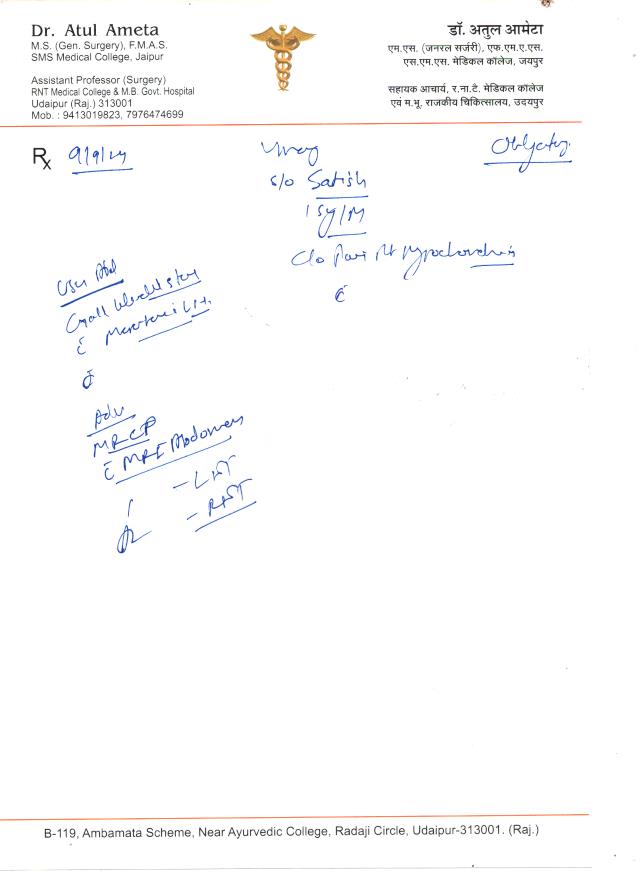 Dr. Atul Ameta
M.S. (Gen. Surgery), F.M.A.S.
SMS Medical College, Jaipur
Assistant Professor (Surgery)
RNT Medical College & M.B. Govt. Hospital
Udaipur (Raj.) 313001
Mob. : 9413019823, 7976474699
डॉ. अतुल आमेटा
एम.एस. (जनरल सर्जरी), एफ.एम.ए.एस.
एस.एम.एस. मेडिकल कॉलेज, जयपुर
सहायक आचार्य, र.ना.टे. मेडिकल कॉलेज
एवं म.भू. राजकीय चिकित्सालय, उदयपुर
Rx 9/9/24
S/o Satish
C/o Pain Rt Hypochondrium
Gall bladder stone
Adv
MRCP
c̄ MRI Abdomen
- LFT
- RFT
B-119, Ambamata Scheme, Near Ayurvedic College, Radaji Circle, Udaipur-313001. (Raj.)